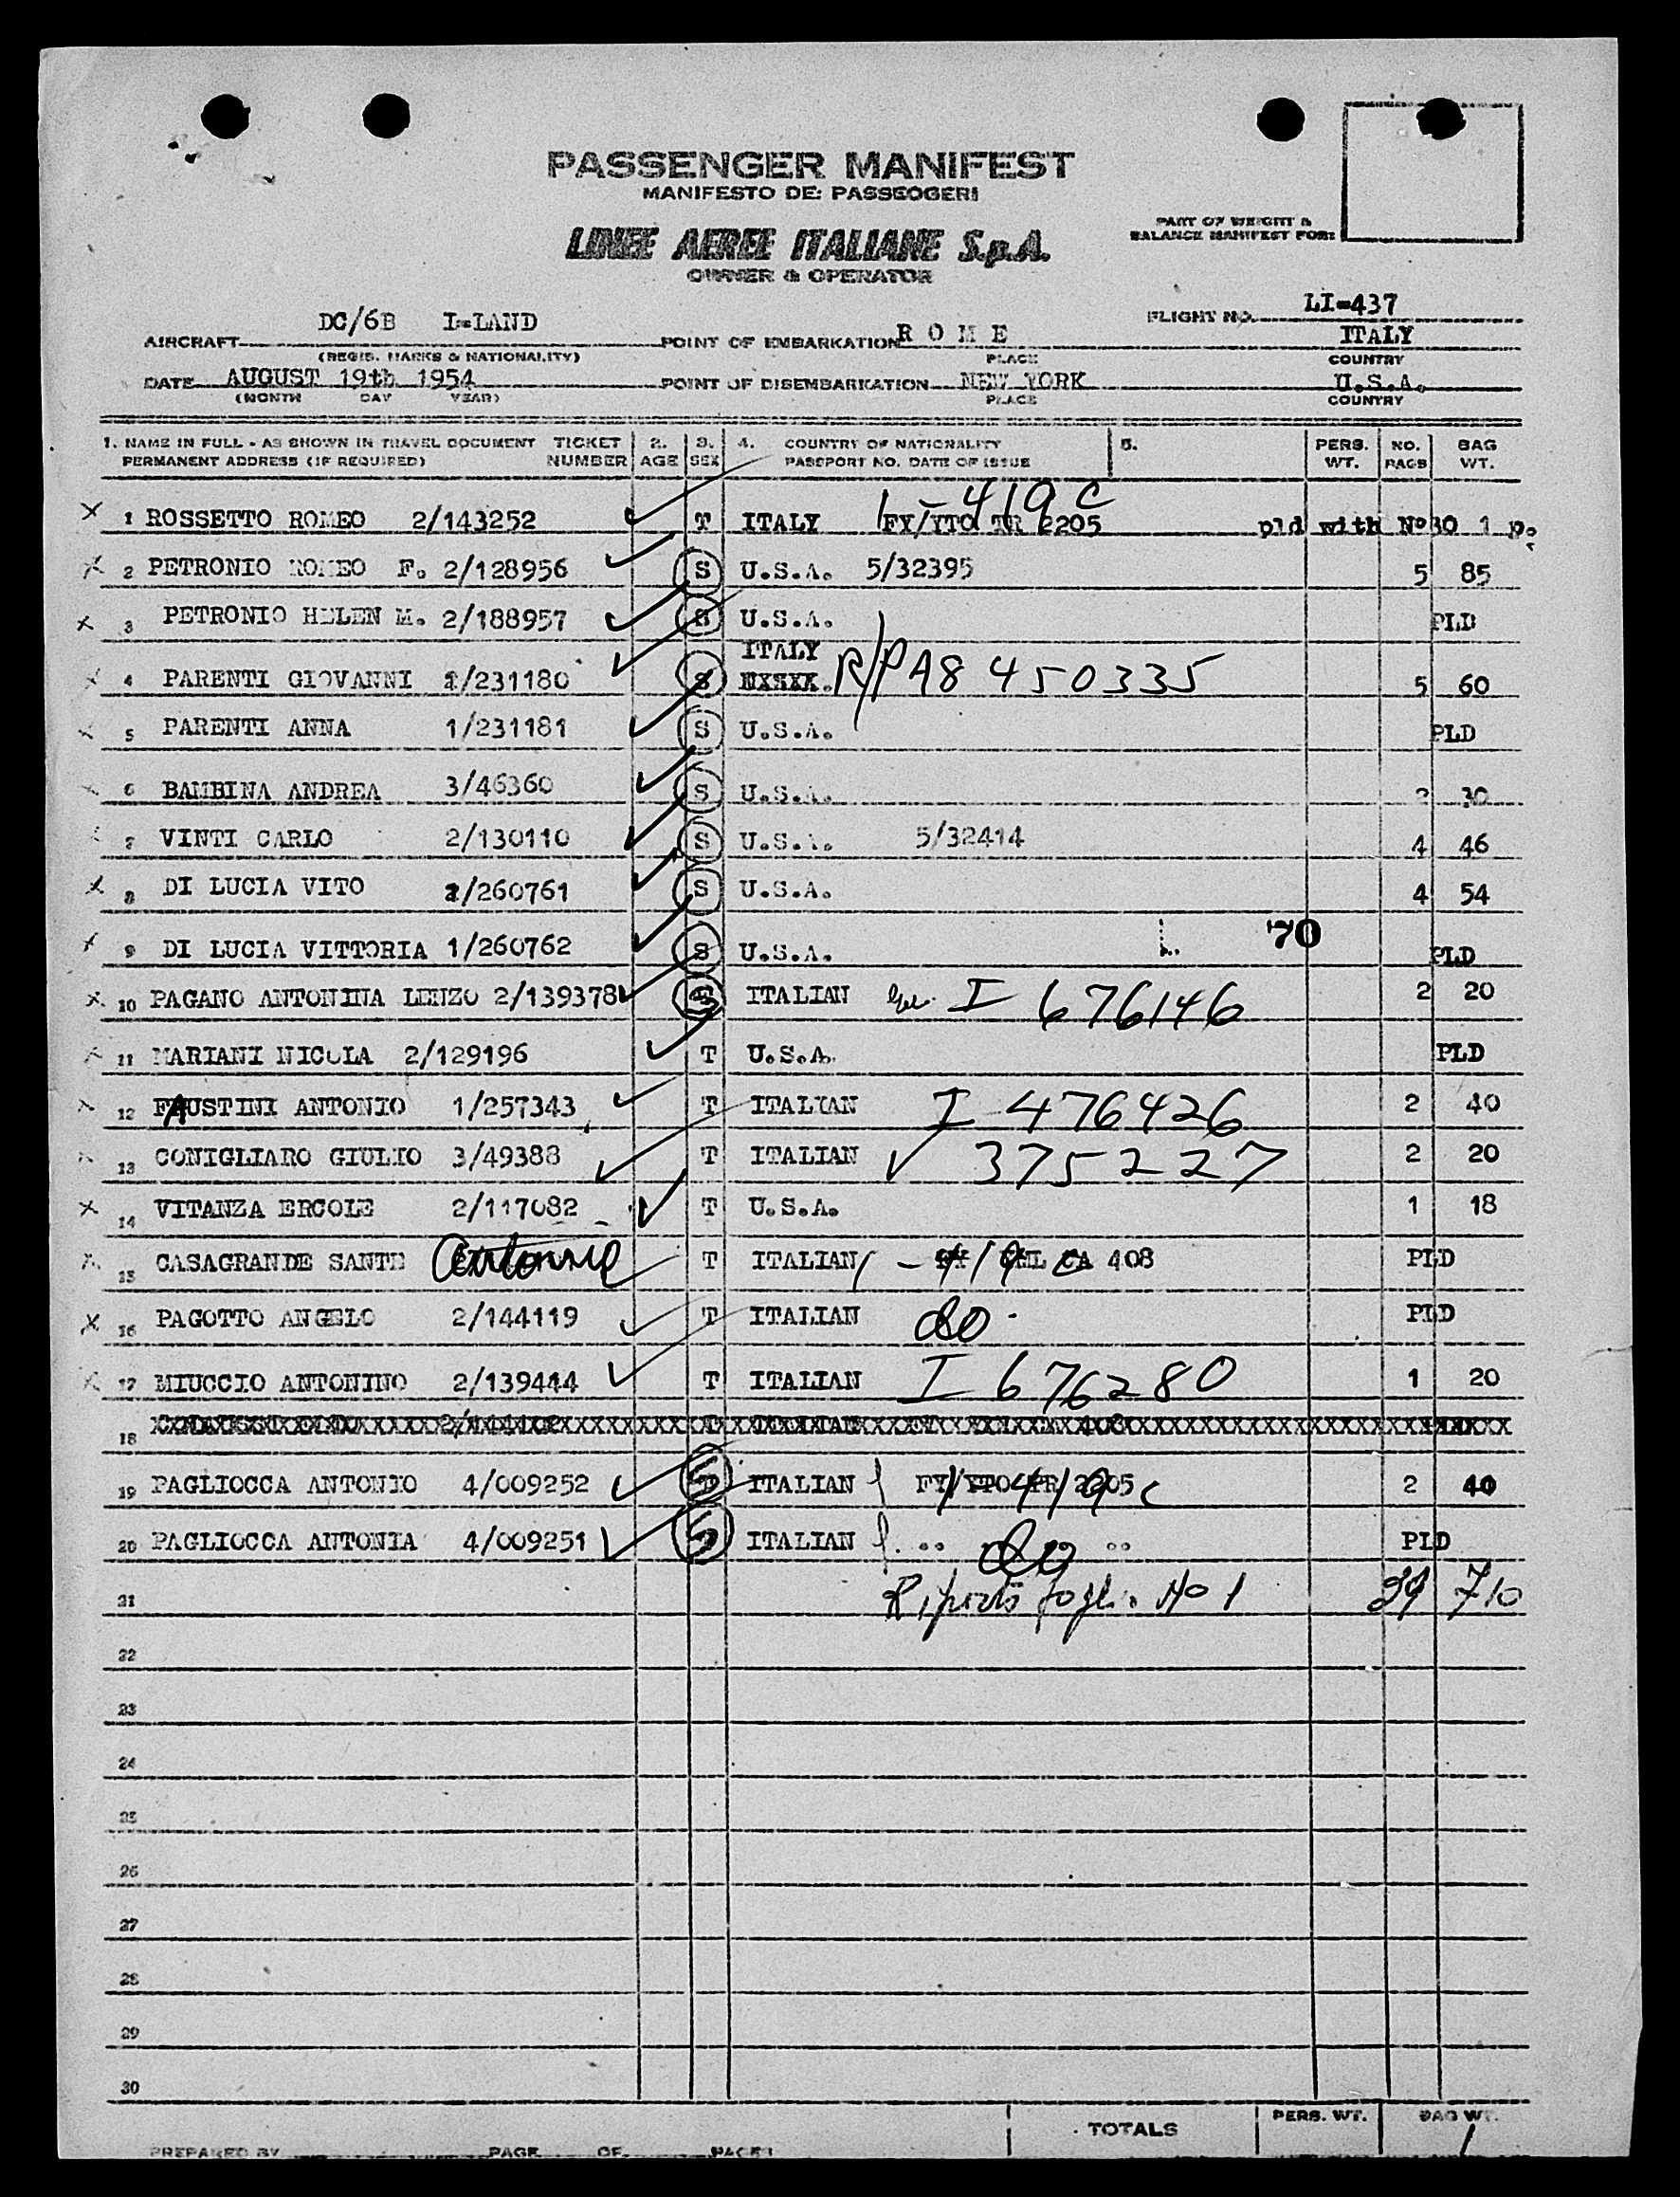 PASSENGER MANIFEST
MANIFESTO DE: PASSEOGERI
LINEE AEREE ITALIANE S.p.A.
OWNER & OPERATOR
PART OF WEIGHT &
BALANCE MANIFEST FOR:
AIRCRAFT DC/6B I-LAND POINT OF EMBARKATION R O M E FLIGHT NO. LI-437
ITALY
(REGIS. MARKS & NATIONALITY) PLACE COUNTRY
DATE AUGUST 19th 1954 POINT OF DISEMBARKATION NEW YORK U.S.A.
(MONTH DAY YEAR) PLACE COUNTRY
1. NAME IN FULL - AS SHOWN IN TRAVEL DOCUMENT TICKET 2. 3. 4. COUNTRY OF NATIONALITY 5. PERS. NO. BAG
PERMANENT ADDRESS (IF REQUIRED) NUMBER AGE SEX PASSPORT NO. DATE OF ISSUE WT. BAGS WT.
1-419 C
X 1 ROSSETTO ROMEO 2/143252 T ITALY FY/YTO TR 2205 pld with N°30 1 p.
X 2 PETRONIO ROMEO F. 2/128956 S U.S.A. 5/32395 5 85
X 3 PETRONIO HELEN M. 2/188957 S U.S.A. PLD
ITALY
X 4 PARENTI GIOVANNI 1/231180 S R/P A8 450335 5 60
X 5 PARENTI ANNA 1/231181 S U.S.A. PLD
X 6 BAMBINA ANDREA 3/46360 S U.S.A. 2 30
7 VINTI CARLO 2/130110 S U.S.A. 5/32414 4 46
X 8 DI LUCIA VITO 1/260761 S U.S.A. 4 54
X 9 DI LUCIA VITTORIA 1/260762 S U.S.A. 70 PLD
X 10 PAGANO ANTONINA LENZO 2/139378 S ITALIAN I 676146 2 20
X 11 MARIANI NICOLA 2/129196 T U.S.A. PLD
X 12 FAUSTINI ANTONIO 1/257343 T ITALIAN I 476426 2 40
X 13 CONIGLIARO GIULIO 3/49388 T ITALIAN 375227 2 20
X 14 VITANZA ERCOLE 2/117082 T U.S.A. 1 18
X 15 CASAGRANDE SANTE Antonio T ITALIAN 1-419 C CA 408 PLD
X 16 PAGOTTO ANGELO 2/144119 T ITALIAN do. PLD
X 17 MIUCCIO ANTONINO 2/139444 T ITALIAN I 676280 1 20
18
19 PAGLIOCCA ANTONIO 4/009252 S ITALIAN FY/YTO TR 2205 1-419 c 2 40
20 PAGLIOCCA ANTONIA 4/009251 S ITALIAN " do " PLD
21 Riporto fogli. No 1 39 710
22
23
24
25
26
27
28
29
30
TOTALS PERS. WT. BAG WT.
PREPARED BY PAGE OF PAGES